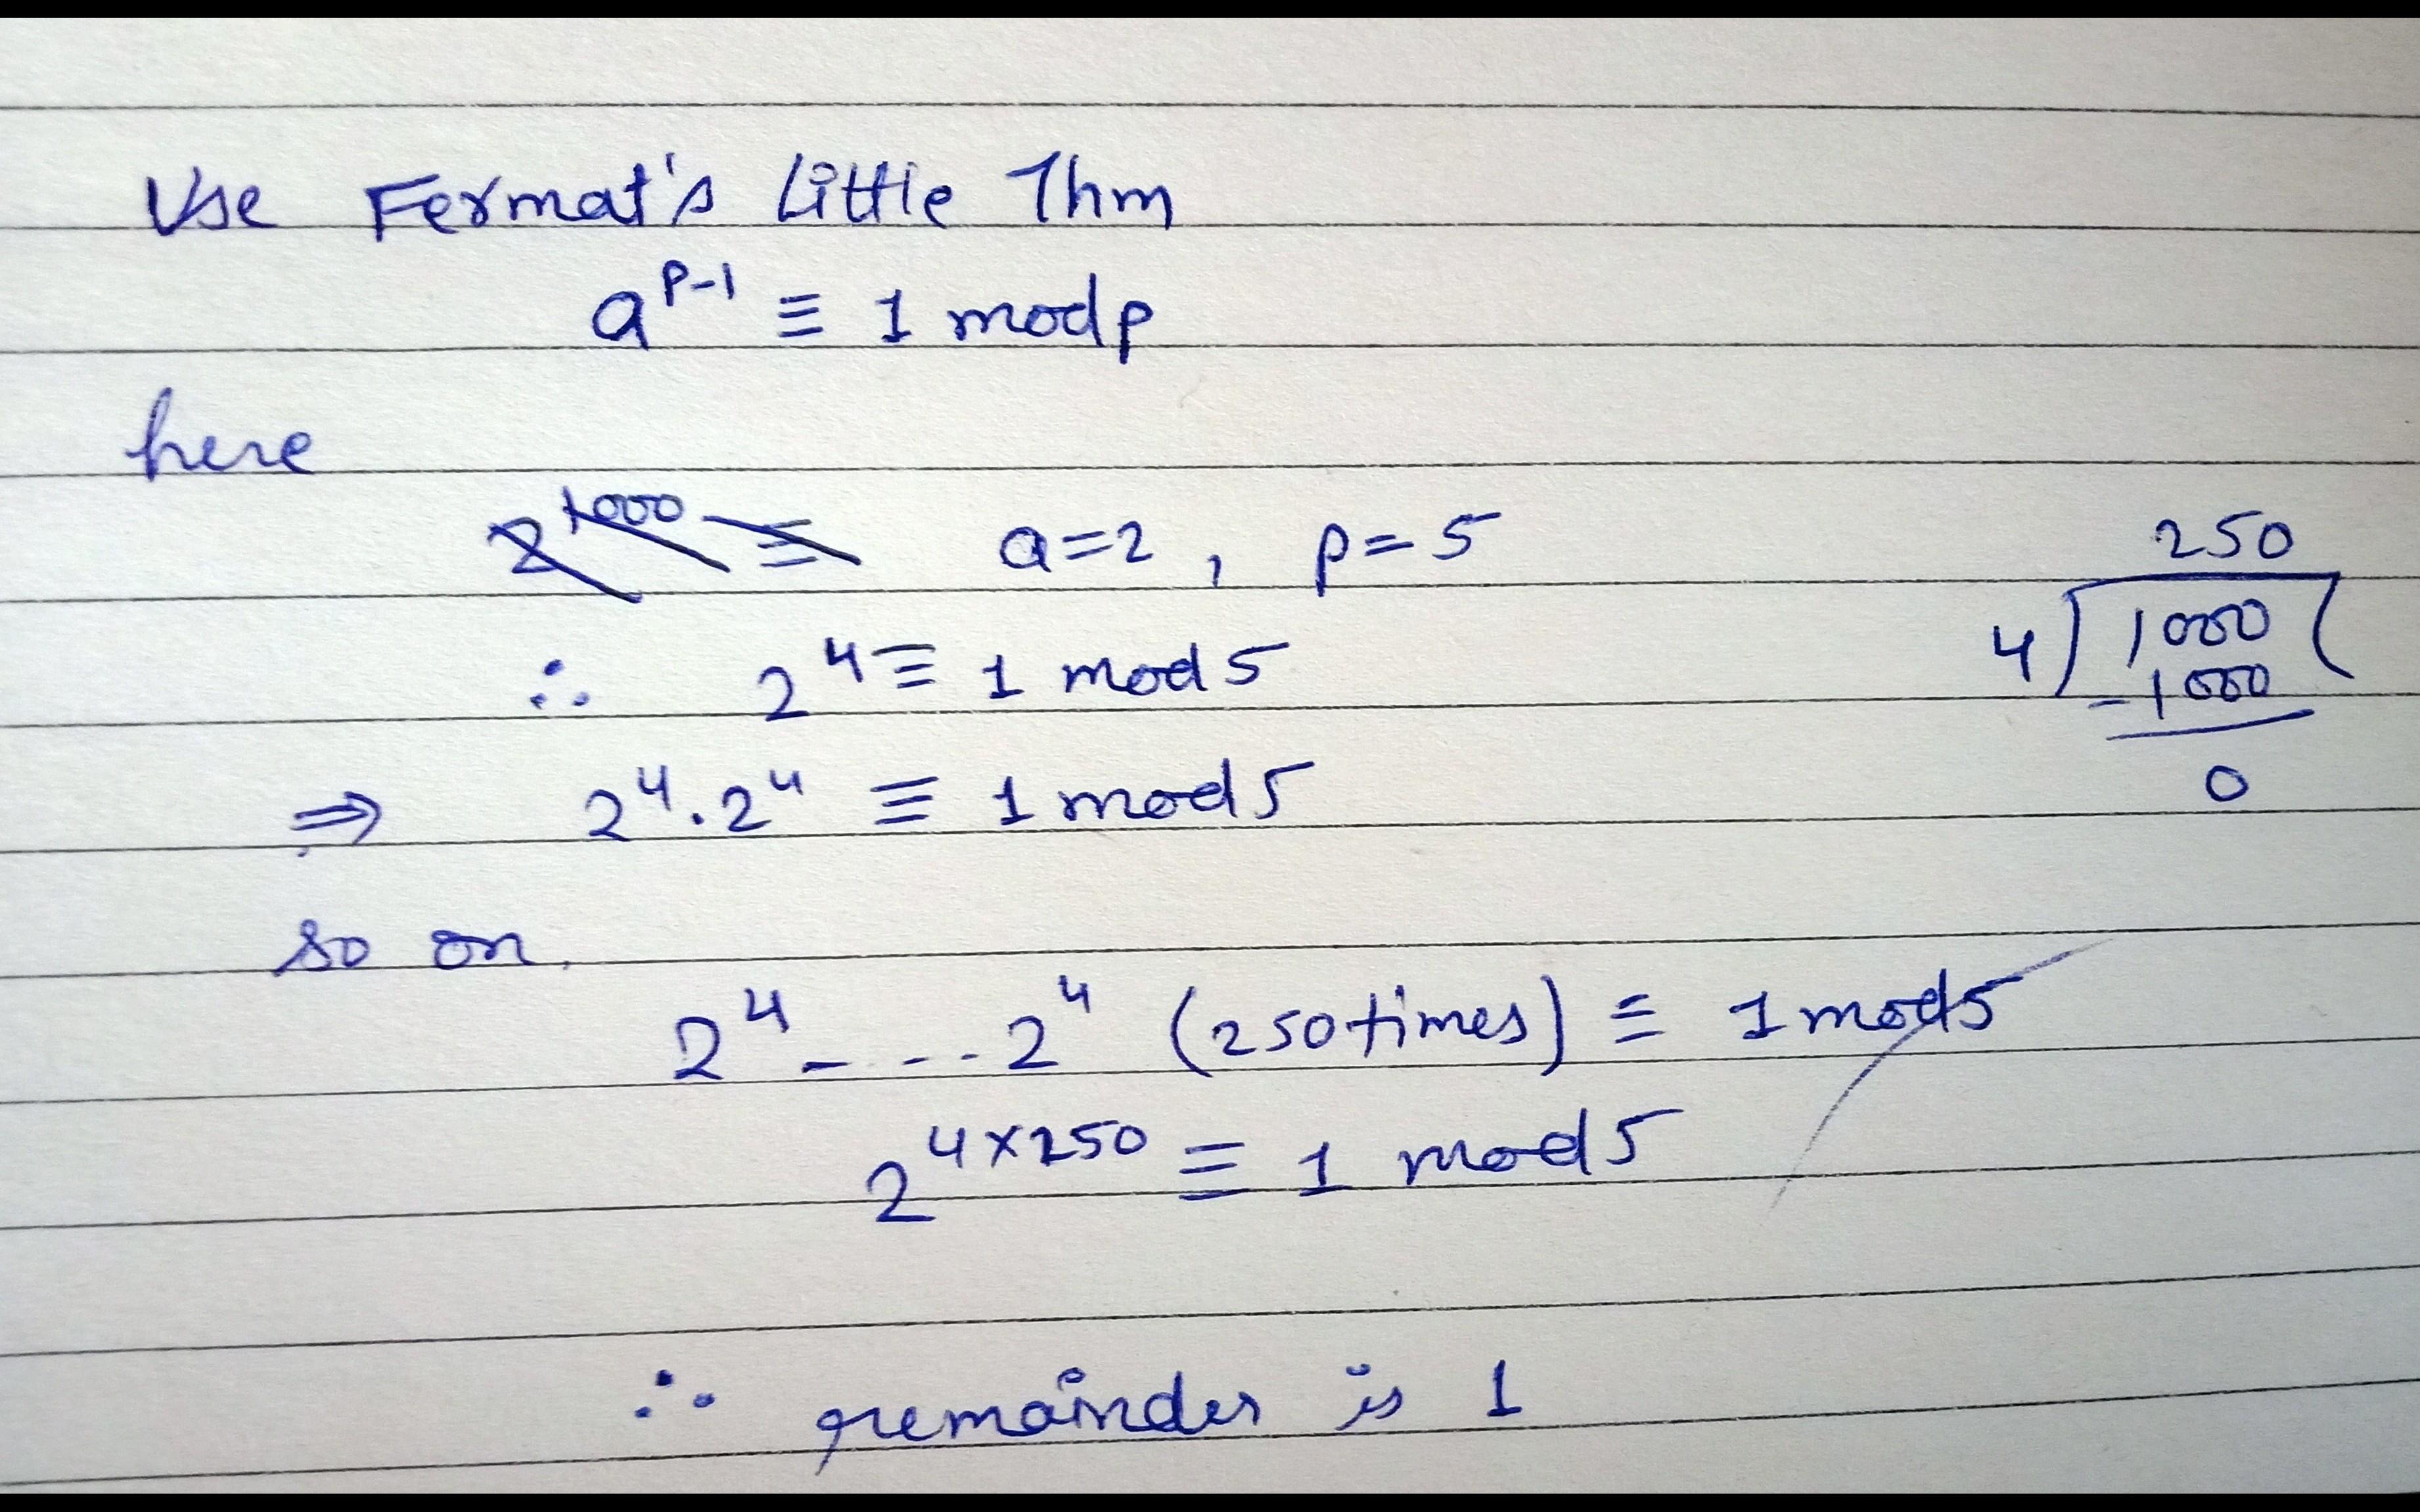 Use Fermat's Little Thm
a^{p-1} ≡ 1 mod p
here
2^{1000} ≡ a=2, p=5
∴ 2^4 ≡ 1 mod 5
⇒ 2^4 . 2^4 ≡ 1 mod 5
so on.
2^4 - - - - 2^4 (250 times) ≡ 1 mod 5
2^{4×250} ≡ 1 mod 5
∴ remainder is 1
250
4) 1000 (
-1000
0